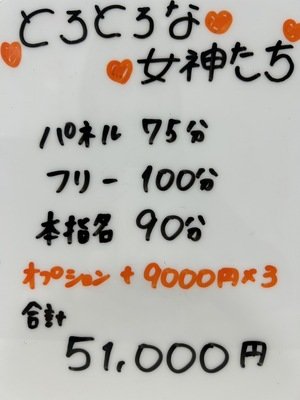 とろとろな
女神たち
パネル 75分
フリー 100分
本指名 90分
オプション + 9000円×3
合計
51,000円